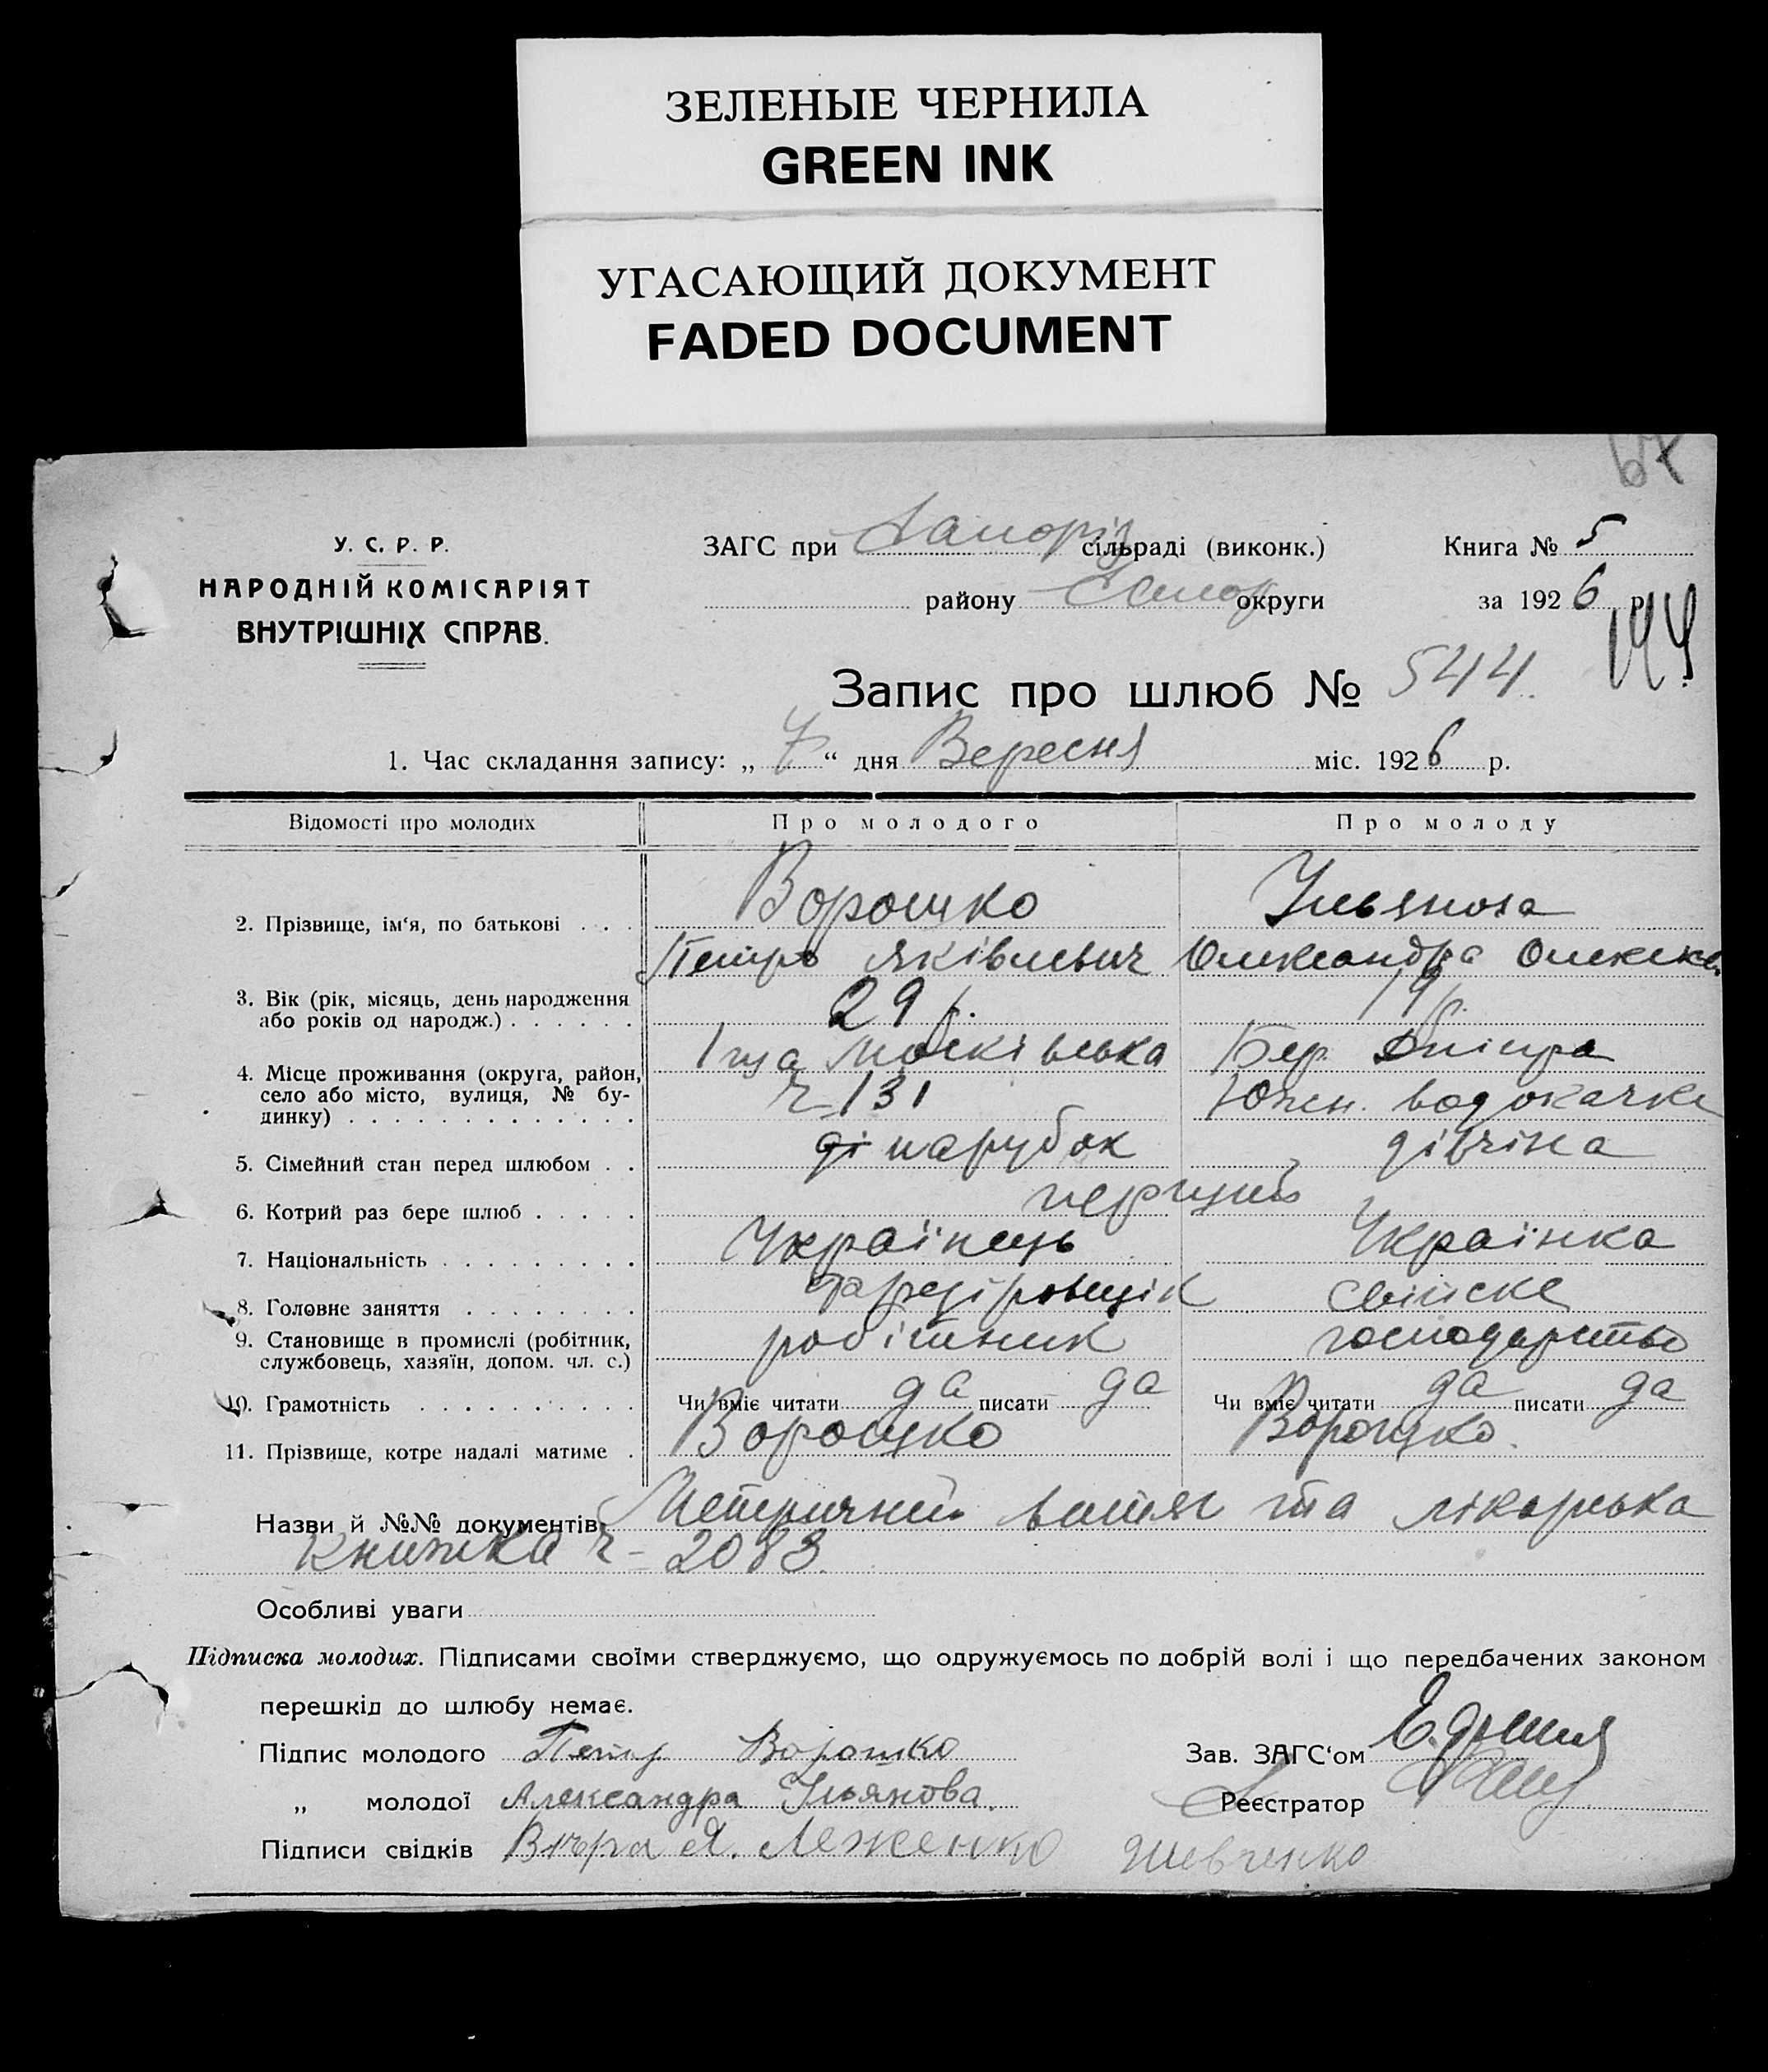 ЗЕЛЕНЫЕ ЧЕРНИЛА
GREEN INK
УГАСАЮЩИЙ ДОКУМЕНТ
FADED DOCUMENT
67
У. С. Р. Р.
НАРОДНІЙ КОМІСАРІЯТ
ВНУТРІШНІХ СПРАВ.
ЗАГС при Запоріз сільраді (виконк.) Книга № 5
району Запор округи за 1926 р.
144
Запис про шлюб № 544.
1. Час складання запису: „ 7 “ дня Вересня міс. 1926 р.
Відомості про молодих Про молодого Про молоду
2. Прізвище, ім‘я, по батькові . . . Ворошко Ульянова
Петро Яківлевич Олександра Олексієв.
3. Вік (рік, місяць, день народження або років од народж.) . . . . . . 29 р. 19 р.
4. Місце проживання (округа, район, село або місто, вулиця, № будинку) . . . . . . . . . . . . . Московська Бер. Дніпра
Ч 131 Южн. водокачка
5. Сімейний стан перед шлюбом . . ді парубок дівчіна
6. Котрий раз бере шлюб . . . . . перший
7. Національність . . . . . . . . . Українець Українка
8. Головне заняття . . . . . . . . свійске
9. Становище в промислі (робітник, службовець, хазяїн, допом. чл. с.) робітник господарство
10. Грамотність . . . . . . . . . . Чи вміє читати да писати да Чи вміє читати да писати да
11. Прізвище, котре надалі матиме . Ворошко Ворошко.
Назви й №№ документів: Метричний витяг та лікарська
книжка Ч – 2083.
Особливі уваги
Підписка молодих. Підписами своїми стверджуємо, що одружуємось по добрій волі і що передбачених законом
перешкід до шлюбу немає.
Підпис молодого Петр Ворошко Зав. ЗАГС‘ом
„ молодої Александра Ульянова. Реєстратор
Підписи свідків Вѣра Я. Леженко Шевченко